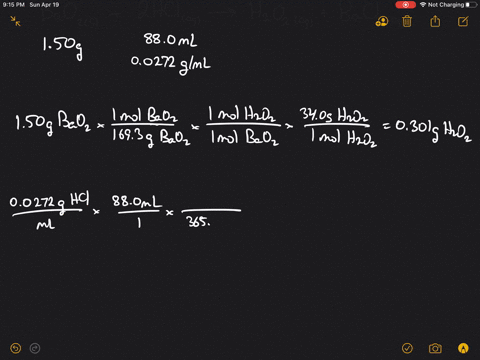 9:15 PM Sun Apr 19
Not Charging
1.50g 88.0mL
0.0272 g/mL
1.50g BaO₂ × 1 mol BaO₂ / 169.3g BaO₂ × 1 mol H₂O₂ / 1 mol BaO₂ × 34.0g H₂O₂ / 1 mol H₂O₂ = 0.301g H₂O₂
0.0272g HCl / mL × 88.0mL / 1 × / 365.